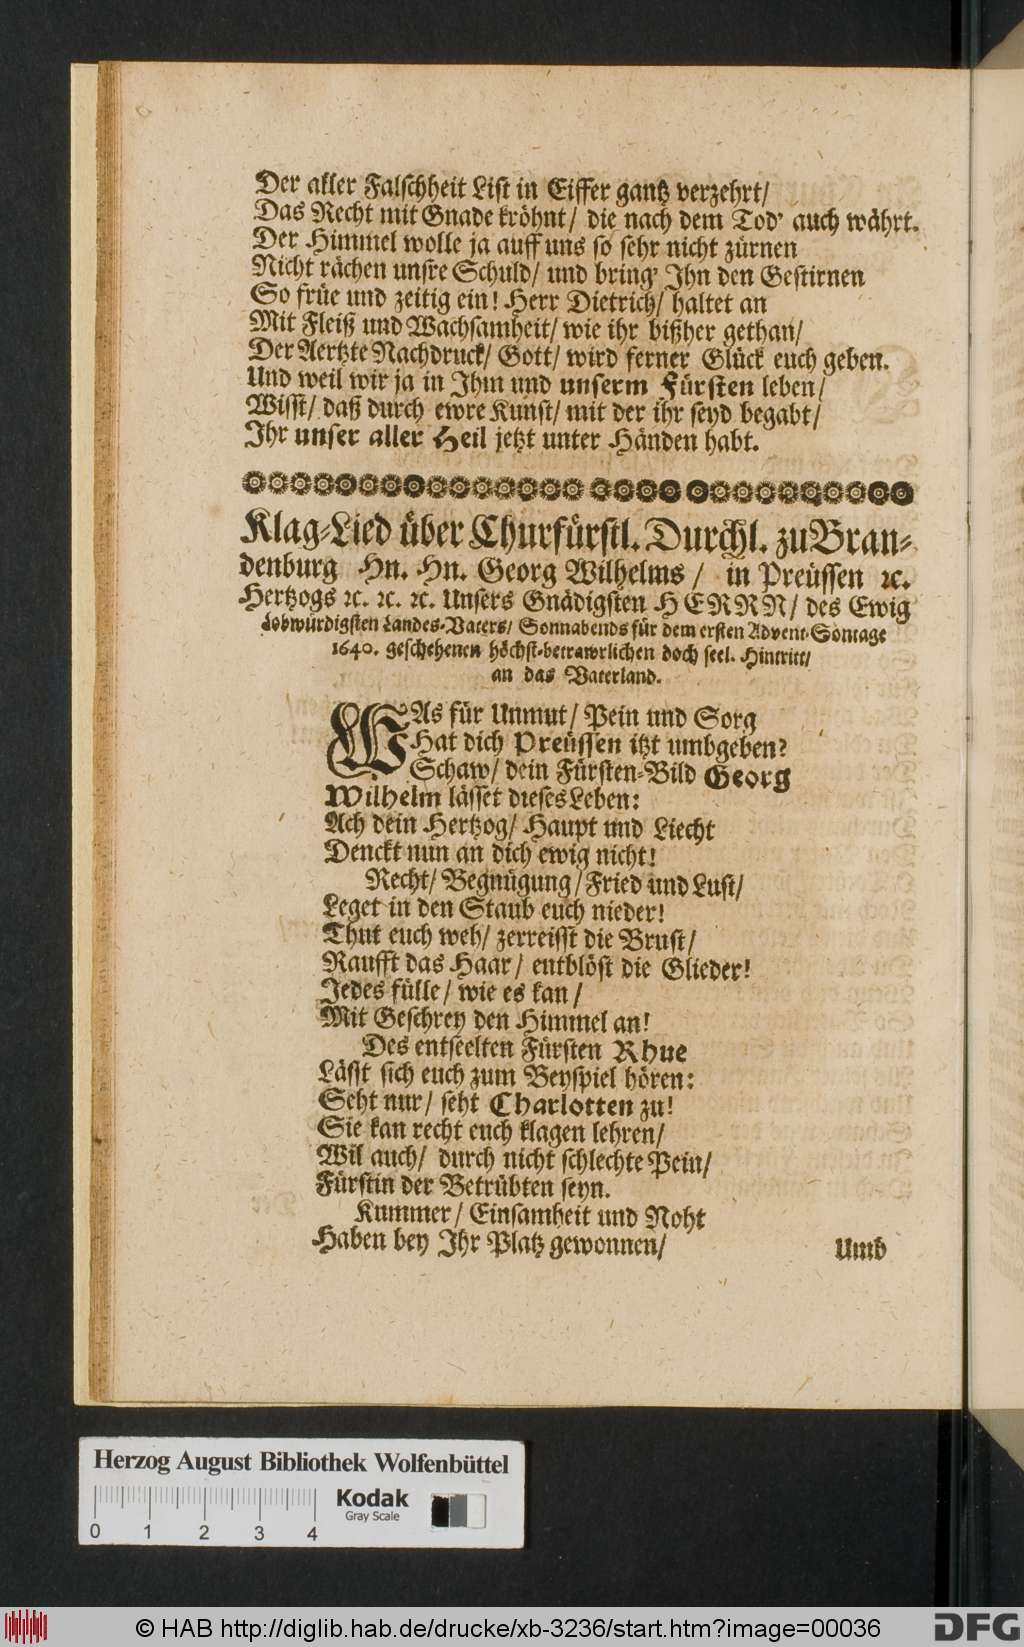 Der aller Falschheit List in Eiffer gantz verzehrt/
Das Recht mit Gnade kröhnt/ die nach dem Tod' auch währt.
Der Himmel wolle ja auff uns so sehr nicht zürnen
Nicht rächen unsre Schuld/ und bring' Ihn den Gestirnen
So früe und zeitig ein! Herr Dietrich/ haltet an
Mit Fleiß und Wachsamheit/ wie ihr bißher gethan/
Der Aertzte Nachdruck/ Gott/ wird ferner Glück euch geben.
Und weil wir ja in Ihm und unserm Fürsten leben/
Wisst/ daß durch ewre Kunst/ mit der ihr seyd begabt/
Ihr unser aller Heil jetzt unter Händen habt.
Klag-Lied über Churfürstl. Durchl. zu Bran-
denburg Hn. Hn. Georg Wilhelms/ in Preüssen ꝛc.
Hertzogs ꝛc. ꝛc. ꝛc. Unsers Gnädigsten HERRN/ des Ewig
Lobwürdigsten Landes-Vaters/ Sonnabends für dem ersten Advent-Sontage
1640. geschehenen höchst-betrawrlichen doch seel. Hintritt/
an das Vaterland.
WAs für Unmut/ Pein und Sorg
Hat dich Preüssen itzt umbgeben?
Schaw/ dein Fürsten-Bild Georg
Wilhelm lässet dieses Leben:
Ach dein Hertzog/ Haupt und Liecht
Denckt nun an dich ewig nicht!
Recht/ Begnügung/ Fried und Lust/
Leget in den Staub euch nieder!
Thut euch weh/ zerreisst die Brust/
Raufft das Haar/ entblöst die Glieder!
Jedes fülle/ wie es kan/
Mit Geschrey den Himmel an!
Des entseelten Fürsten Rhue
Lässt sich euch zum Beyspiel hören:
Seht nur/ seht Charlotten zu!
Sie kan recht euch klagen lehren/
Wil auch/ durch nicht schlechte Pein/
Fürstin der Betrübten seyn.
Kummer/ Einsamheit und Noht
Haben bey Ihr Platz gewonnen/
Umb
Herzog August Bibliothek Wolfenbüttel
Kodak
Gray Scale
0 1 2 3 4
© HAB http://diglib.hab.de/drucke/xb-3236/start.htm?image=00036
DFG